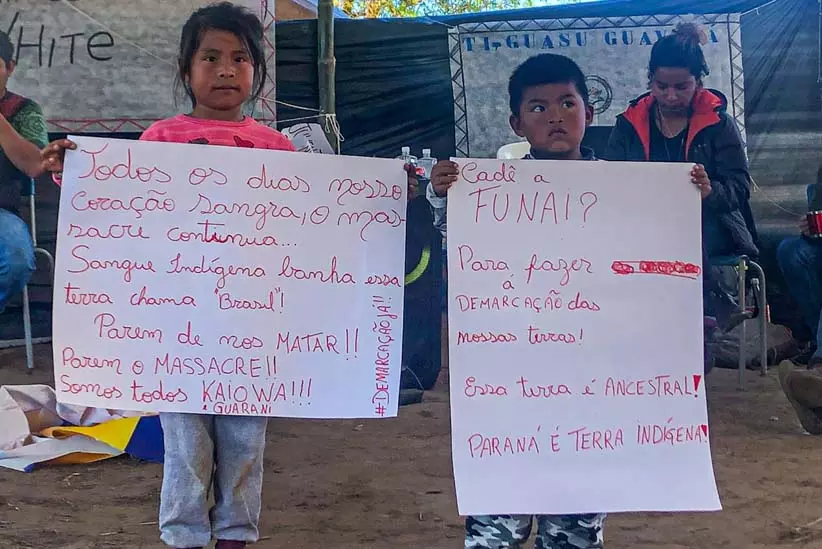 WHITE
TI-GUASU GUAVIRÁ
Todos os dias nosso
coração sangra, o mas-
sacre continua...
Sangue Indígena banha essa
terra chama "Brasil"!
Parem de nos MATAR!!
Parem o MASSACRE!!
Somos todos KAIOWÁ!!!
& GUARANI
#DEMARCAÇÃO JÁ!!
Cadê a
FUNAI?
Para fazer
á
DEMARCAÇÃO das
nossas terras!
Essa terra é ANCESTRAL!
PARANÁ É TERRA INDÍGENA!